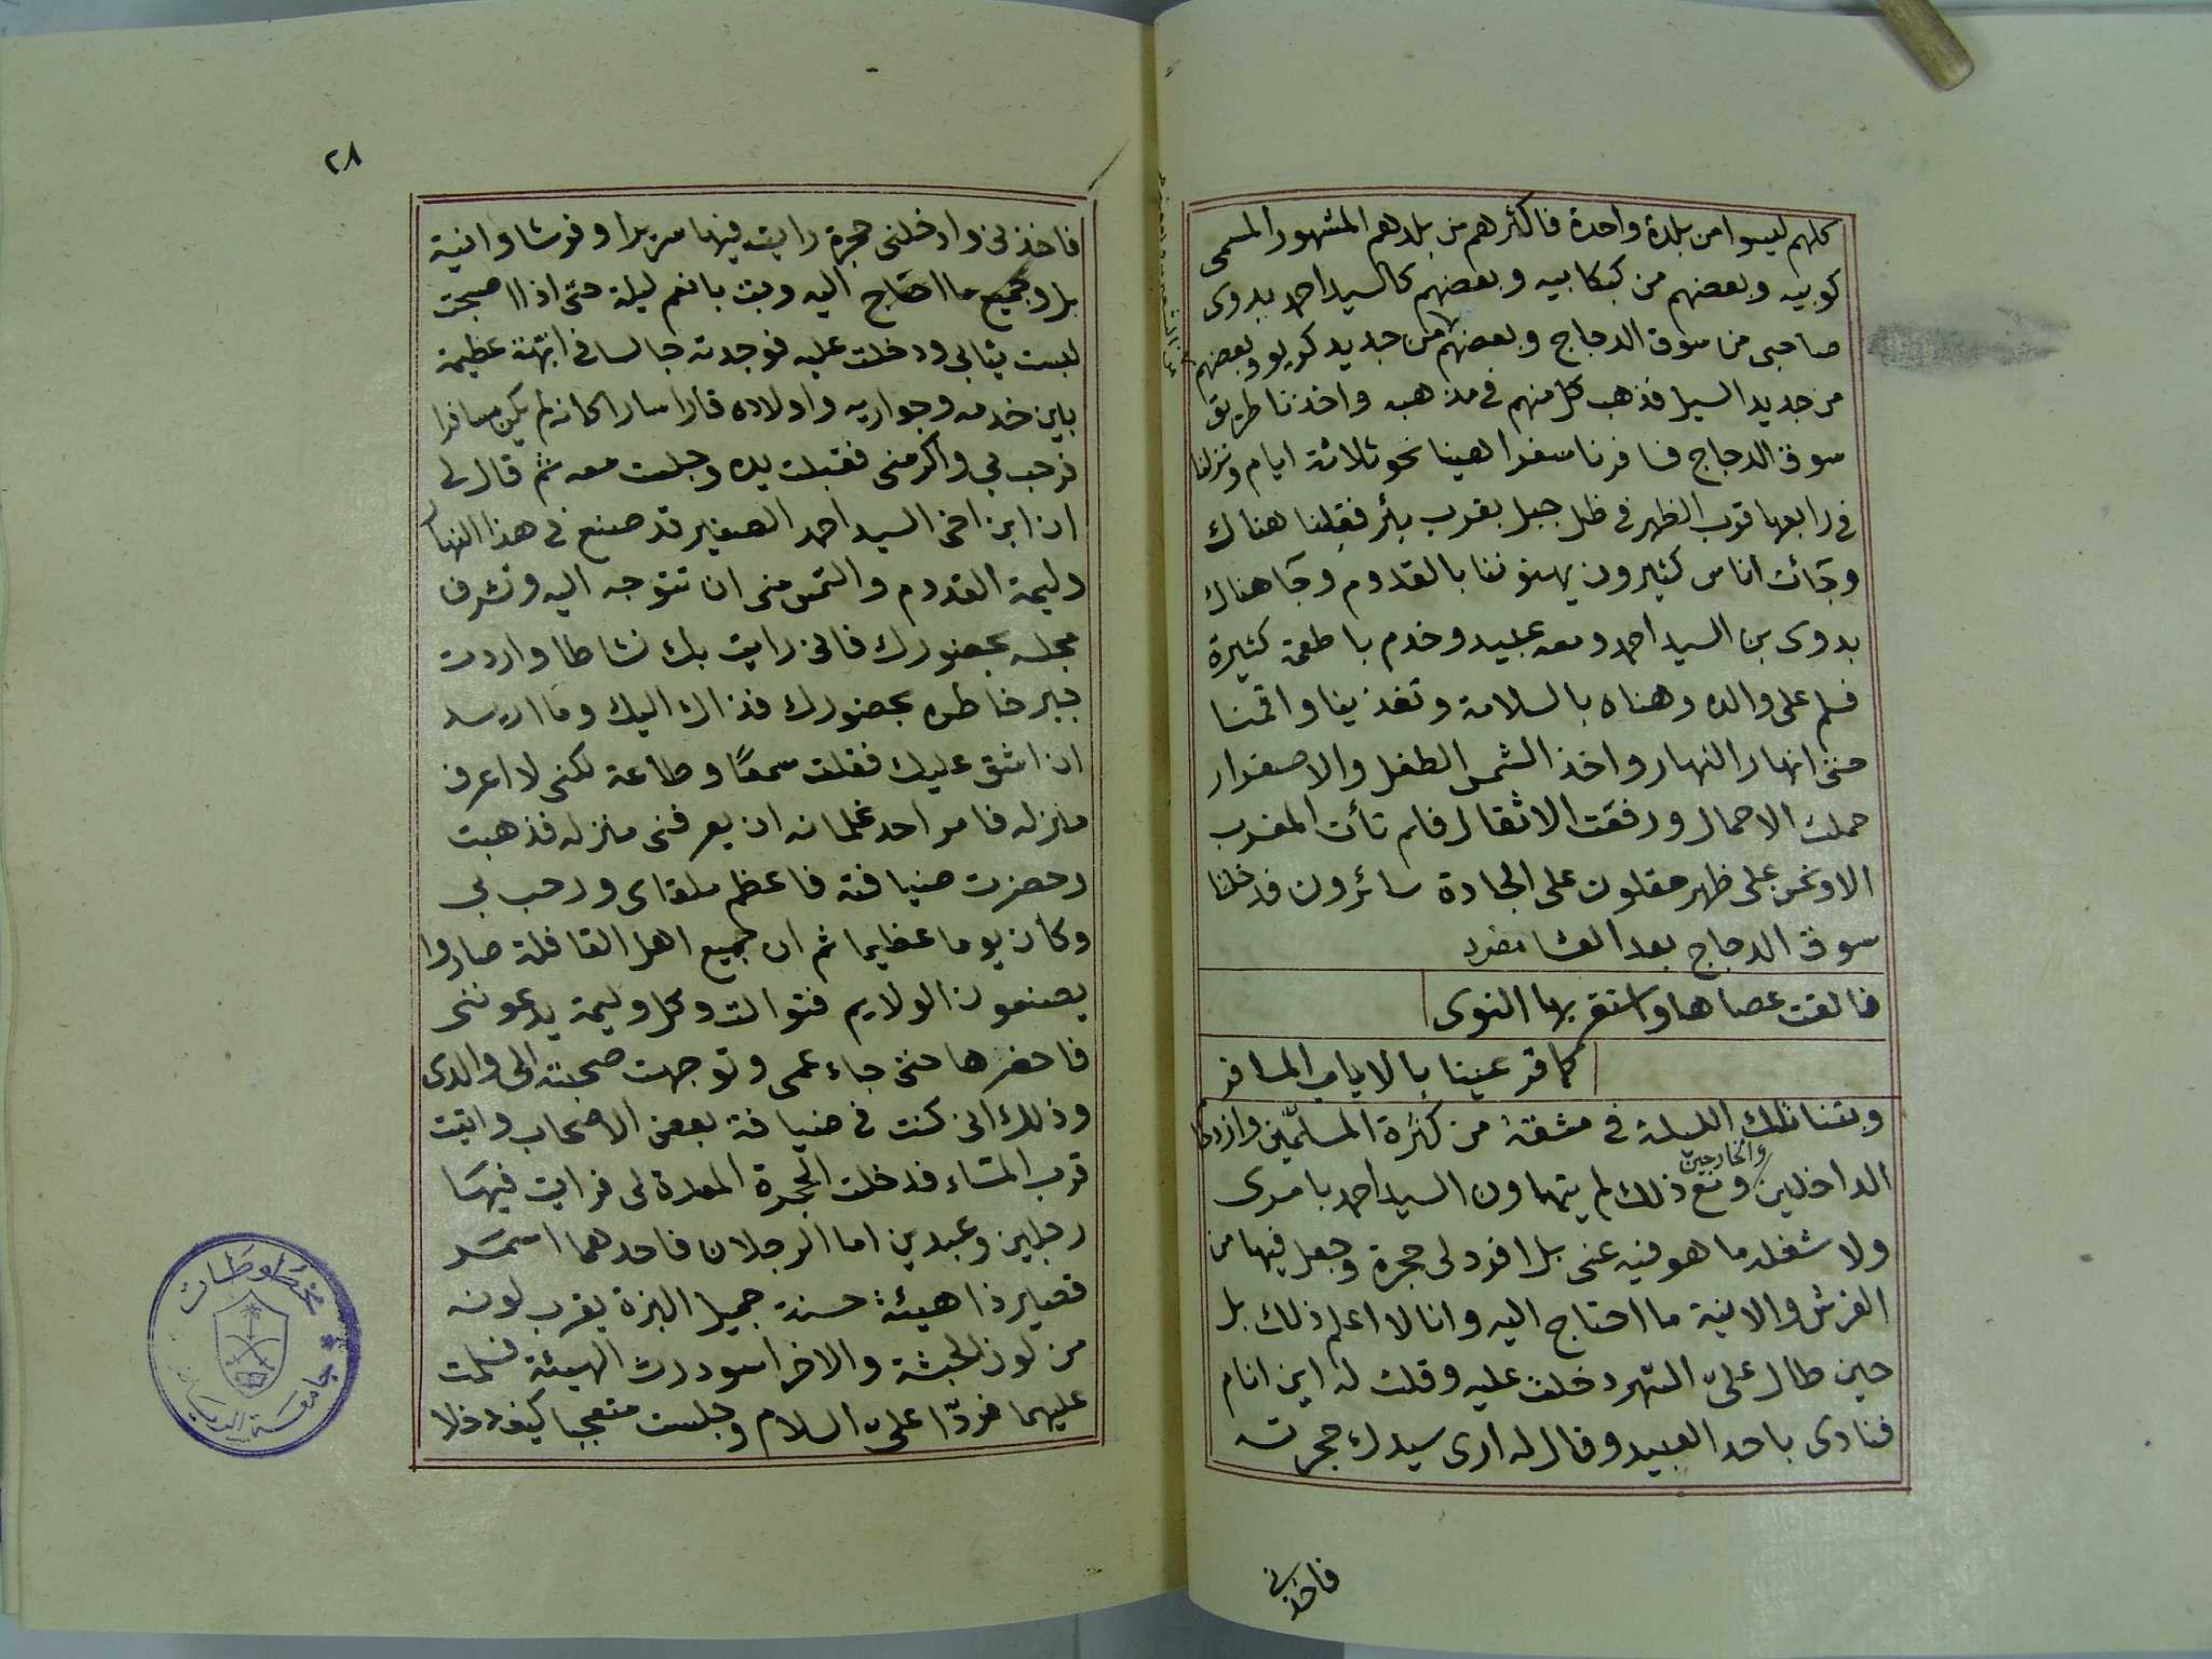 كلهم ليسوا من بلدة واحدة فاكثرهم من بلدهم المشهور المسمى
كوبيه وبعضهم من كبكابيه وبعضهم كالسيد احمد بدوى
صاحبى من سوق الدجاج وبعضهم من جديد كريو وبعضهم
من جديد السيل فذهب كل منهم فى مذهبه واخذنا طريق
سوق الدجاج فسافرنا سفرا هينا نحو ثلاثة ايام ونزلنا
فى رابعها قرب الظهر فى ظل جبل بقرب بئر فقلنا هناك
وجائت اناس كثيرون يهنوننا بالقدوم وجا هناك
بدوى بن السيد احمد ومعه عبيد وخدم باطعمة كثيرة
فسلم على والده وهناه بالسلامة وتغذينا واقمنا
حتى انهار النهار واخذ الشمس الطفل والاصفرار
حملت الاحمال ورفعت الاثقال فلم تأت المغرب
الا ونحن على ظهر مقلون على الجادة سائرون فدخلنا
سوق الدجاج بعد العشا مفرد
فالقت عصاها واستقر بها النوى
كما قر عينا بالاياب المسافر
وبتنا تلك الليلة فى مشقة من كثرة المسلّمين وازدحام
الداخلين والخارجين ومع ذلك لم يتهاون السيد احمد بامرى
ولا شغله ما هو فيه عنى بل افرد لى حجرة وجعل فيها من
الفرش والانية ما احتاج اليه وانا لا اعلم ذلك بل
حين طال علىّ السهر دخلت عليه وقلت له اين انام
فنادى باحد العبيد وقال له ارى سيدك حجرته
فاخذنى
٢٨
فاخذنى وادخلنى حجرة رايت فيها سريرا وفرشا وانية
بل وجميع ما احتاج اليه وبت بانعم ليلة حتى اذا اصبحت
لبست ثيابى ودخلت عليه فوجدته جالسا فى ابّهة عظيمة
باين خدمه وجواريه واولاده قارا سارا كانه لم يكن مسافرا
فرحب بي واكرمنى فقبلت يده وجلست معه ثم قال لى
ان ابن اخى السيد احمد الصغير قد صنع فى هذا النهار
وليمة القدوم والتمس منى ان تتوجه اليه وتشرف
مجلسه بحضورك فانى رايت بك نشاطا واردت
جبر خاطره بحضورك فذاك اليك وما اريد
ان اشق عليك فقلت سمعًا وطاعة لكنى لا اعرف
منزله فامر احد غلمانه ان يعرفنى منزله فذهبت
وحضرت ضيافته فاعظم ملقاى ورحب بى
وكان يوما عظيما ثم ان جميع اهل القافلة صاروا
يصنعون الولايم فتوالت وكل وليمة يدعوننى
فاحضرها حتى جاء عمى وتوجهت صحبته الى والدى
وذلك انى كنت فى ضيافة بعض الاصحاب واتيت
قرب المساء فدخلت الحجرة المعدة لى فرايت فيها
رجلين وعبدين اما الرجلان فاحدهما اسمر
قصير ذا هيئة حسنة جميل البزة يقرب لونه
من لون الحبشة والاخر اسود رث الهيئة فسلمت
عليهما فردّا علىّ السلام وجلست متعجبا كيف دخلا
مخطوطات
جامعة الرياض